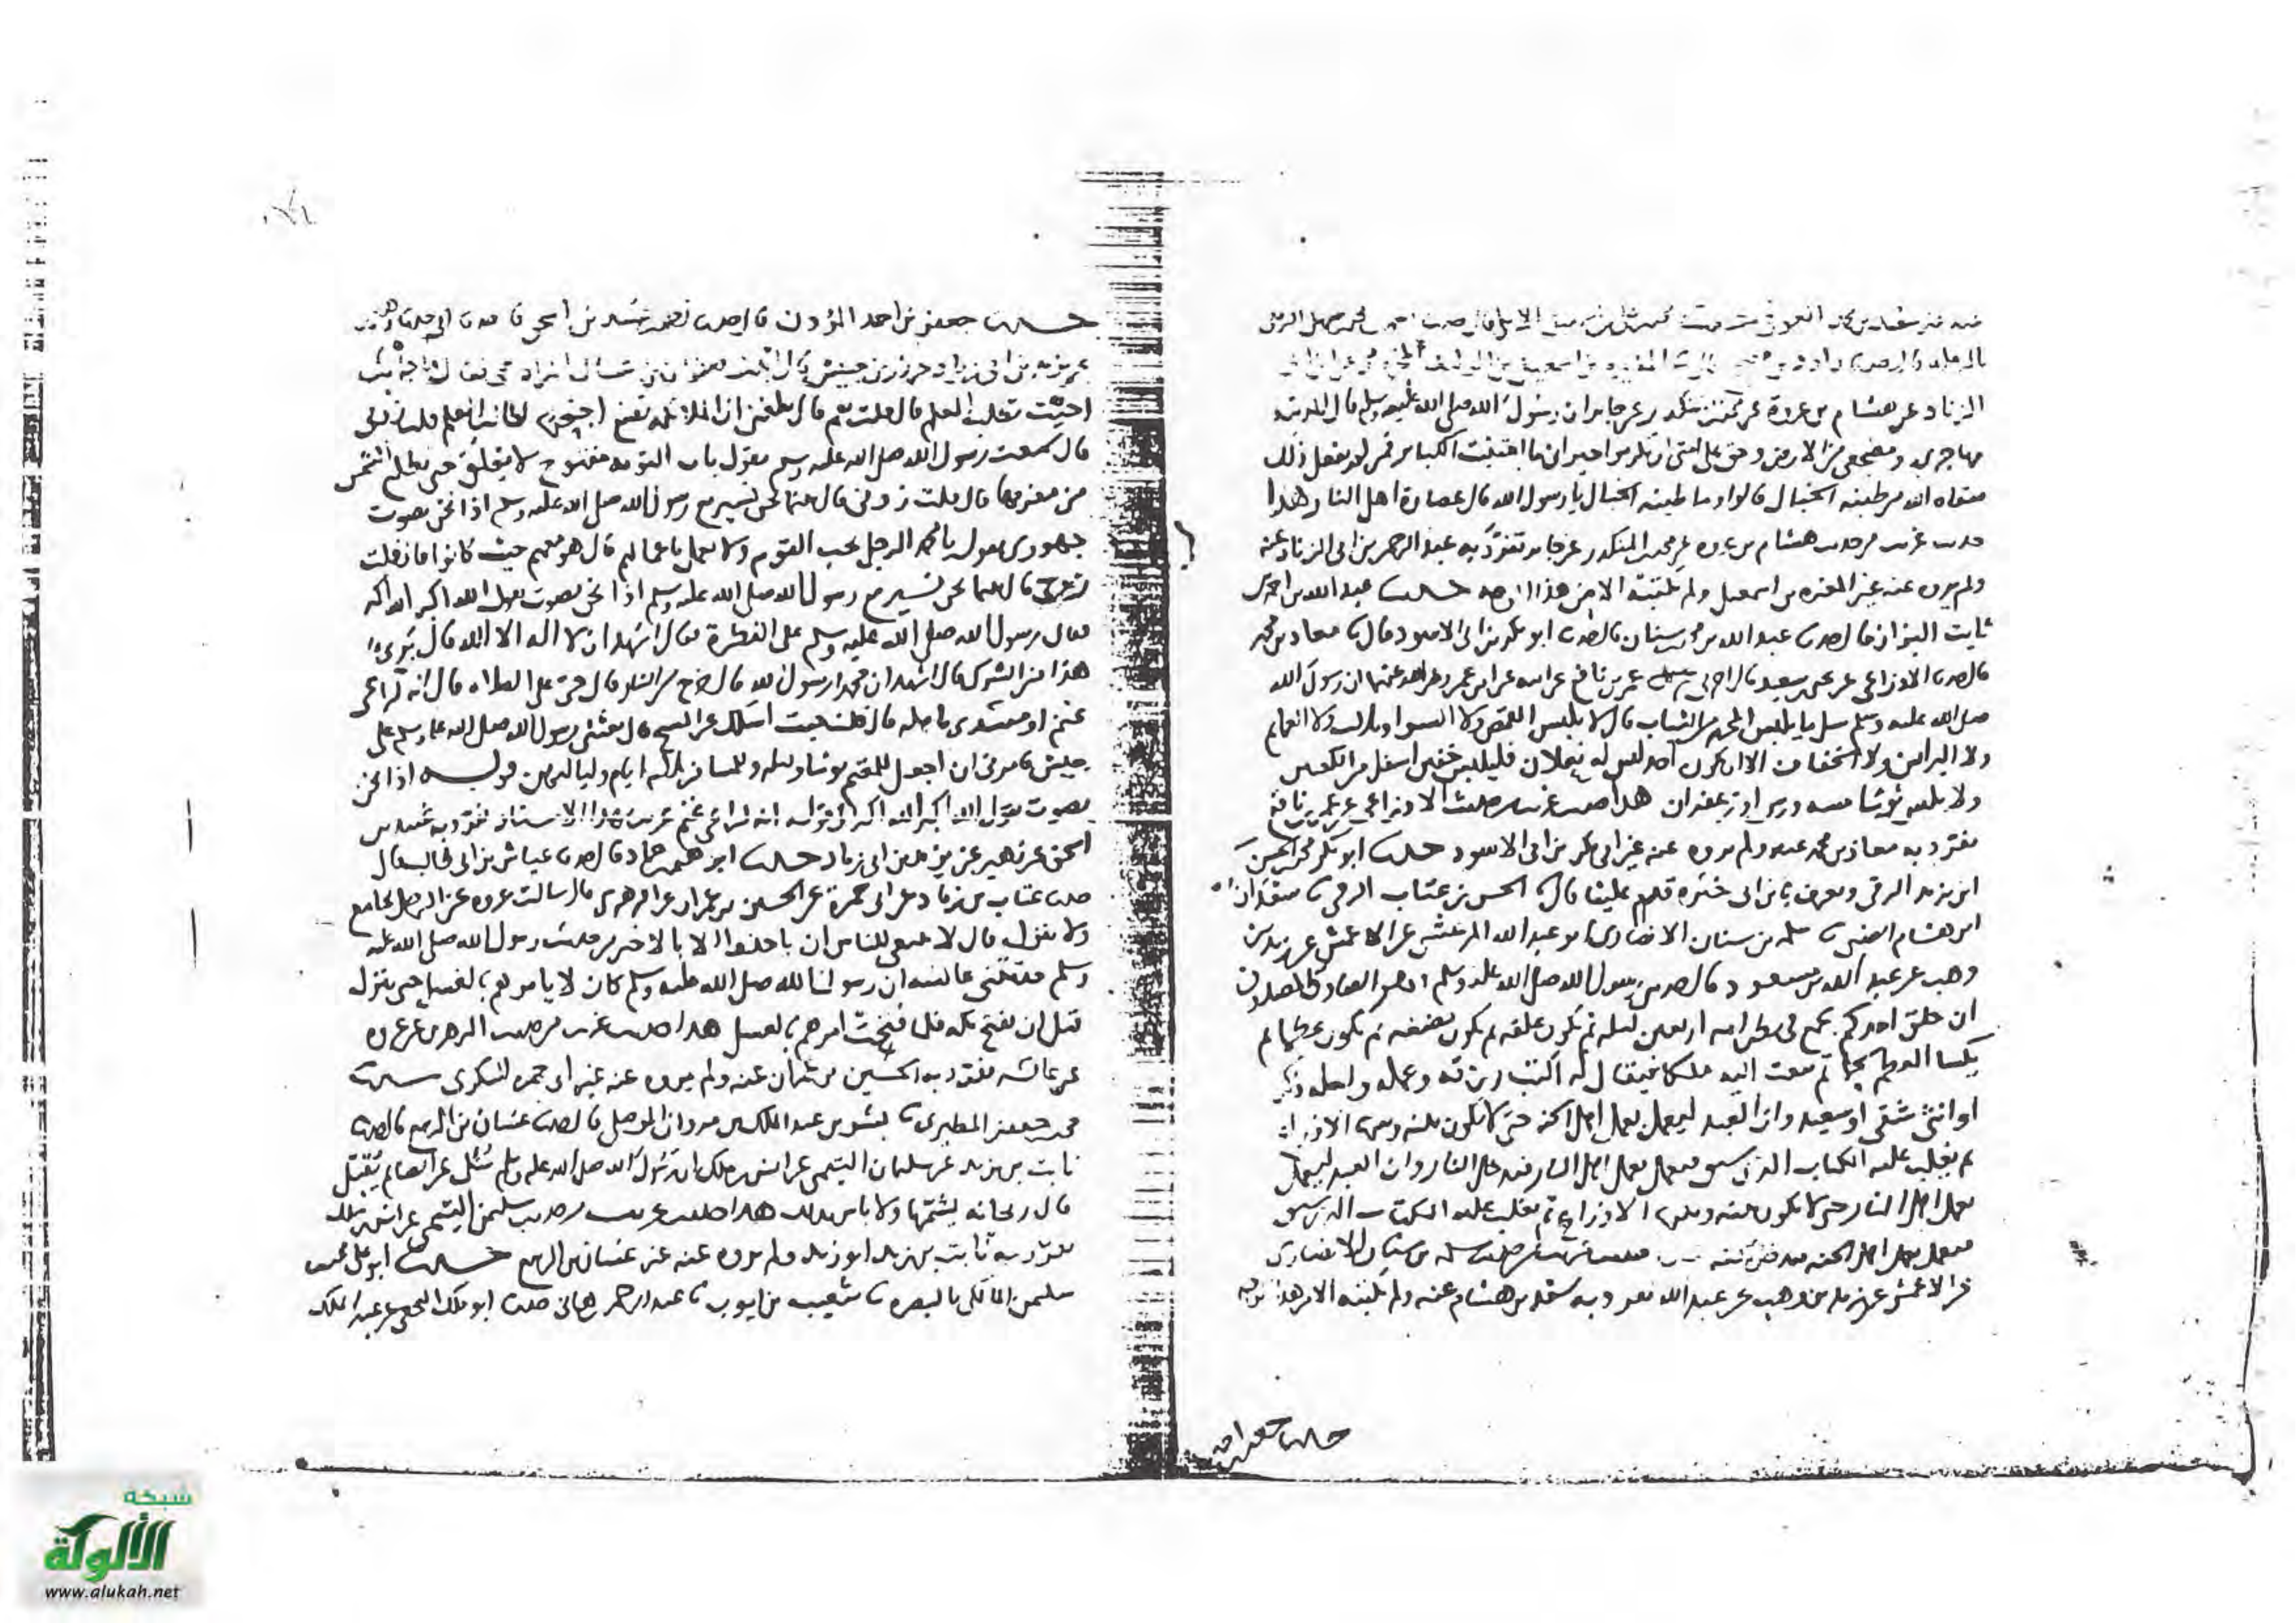 الزناد عن هشام بن عروة عن محمد بن منكدر عن جابر ان رسول الله صلى الله عليه وسلم قال المدينة
مهاجري ومضجعي من الارض وحق على امتي ان يكرموا جيراني ما اجتنبت الكبائر فمن لم يفعل ذلك
سقاه الله من طينة الخبال قالوا وما طينة الخبال يا رسول الله قال عصارة اهل النار هذا
حديث غريب من حديث هشام بن عروة عن محمد بن المنكدر عن جابر تفرد به عبد الرحمن بن ابي الزناد عنه
ولم يروه عنه غير المغيره بن اسمعيل ولم نكتبه الا من هذا الوجه حدثنا عبد الله بن احمد بن
ثابت البزاز قال حدثنا عبد الله بن محمد بن سنان قال حدثنا ابو بكر بن ابي الاسود قال نا معاذ بن محمد
قال حدثنا الاوزاعي عن يحيى بن سعيد قال اخبرني عمر بن نافع عن ابيه عن ابن عمر رضي الله عنهما ان رسول الله
صلى الله عليه وسلم سئل ما يلبس المحرم من الثياب قال لا يلبس القمص ولا السراويلات ولا العمايم
ولا البرانس ولا الخفاف الا ان يكون احد ليس له نعلان فليلبس خفين اسفل من الكعبين
ولا يلبس ثوبا مسه ورس او زعفران هذا حديث غريب من حديث الاوزاعي عن عمر بن نافع
تفرد به معاذ بن محمد عنه ولم يروه عنه غير ابي بكر بن ابي الاسود حدثنا ابو بكر محمد بن الحسين
ابن يزيد الرقي ويعرف بابن ابي خبزه قدم علينا قال نا الحسن بن عتاب الرقي نا سعدان
ابن هشام نا سلمه بن سنان الانصاري ابو عبد الله المرعشي عن الاعمش عن زيد بن
وهب عن عبد الله بن مسعود قال حدثني رسول الله صلى الله عليه وسلم وهو الصادق المصدوق
ان خلق احدكم يجمع في بطن امه اربعين ليله ثم يكون علقه ثم يكون مضغه ثم يكون عظاما ثم
يكسا العظام لحما ثم يبعث اليه ملكا فيقال له اكتب رزقه وعمله واجله ذكر
او انثى شقي او سعيد وان العبد ليعمل بعمل اهل الجنة حتى لا يكون بينه وبينها الا ذراع
ثم يغلب عليه الكتاب الذي سبق فيعمل بعمل اهل النار فيدخل النار وان العبد ليعمل
بعمل اهل النار حتى لا يكون بينه وبينها الا ذراع ثم يغلب عليه الكتاب الذي سبق
فيعمل بعمل اهل الجنة حديث سلمه بن سنان الانصاري
عن الاعمش عن زيد بن وهب عن عبد الله تفرد به سعدان بن هشام عنه ولم نكتبه الا من هذا
حدثنا جعفر بن احمد
حدثنا جعفر بن احمد المؤذن قال حدثنا بن اسحق
اجئت تطلب العلم قال قلت نعم قال بلغني ان الملائكة تضع اجنحتها لطالب العلم قلت زدني
قال سمعت رسول الله صلى الله عليه وسلم يقول باب التوبة مفتوح لا يغلق حتى تطلع الشمس
من مغربها قال قلت زدني قال بينما نحن نسير مع رسول الله صلى الله عليه وسلم اذا نحن بصوت
جهوري يقول يا محمد الرجل يحب القوم ولا يعمل باعمالهم قال هو معهم حيث كانوا قال فقلت
زدني قال بينما نحن نسير مع رسول الله صلى الله عليه وسلم اذا نحن بصوت يقول الله اكبر الله اكبر
فقال رسول الله صلى الله عليه وسلم على الفطرة فقال اشهد ان لا اله الا الله قال برئ
هذا من الشرك قال اشهد ان محمدا رسول الله قال خرج من النار قال حي على الصلاه قال انه لراعي
غنم او مبتدي باهله قال قلت جيت اسئلك عن المسح قال بعثني رسول الله صلى الله عليه وسلم على
جيش فامرني ان اجعل للمقيم يوما وليله وللمسافر ثلثه ايام ولياليهن قوله اذا نحن
بصوت يقول الله اكبر الله اكبر الى قوله انه لراعي غنم غريب بهذا الاسناد تفرد به عبيد بن
اسحق عن زهير عن يزيد بن ابي زياد حدثنا ابراهيم بن حماد قال حدثنا عباس بن ابي طالب قال
حدثنا عتاب بن زياد عن ابي حمزة عن الحسين بن عمران عن الزهري قال سالت عروه عن الرجل يجامع
ولا ينزل قال لا ينبغي للناس ان ياخذوا الا بالاخر من حديث رسول الله صلى الله عليه
وسلم حدثتني عائشه ان رسول الله صلى الله عليه وسلم كان لا يامرهم بالغسل حتى ينزل
قبل ان تفتح مكه فلما فتحت امرهم بالغسل هذا حديث غريب من حديث الزهري عن عروه
عن عائشه تفرد به الحسين بن عمران عنه ولم يروه عنه غير ابي حمزه السكري حدثنا
محمد بن جعفر المطيري نا بشر بن عبد الملك بن مروان الموصلي قال حدثنا غسان بن الربيع قال حدثنا
ثابت بن يزيد عن سليمان التيمي عن انس بن ملك ان رسول الله صلى الله عليه وسلم سئل عن الصايم يقبل
قال ريحانه يشمها ولا باس بذلك هذا حديث غريب من حديث سليمن التيمي عن انس بن ملك
تفرد به ثابت بن يزيد ابو زيد ولم يروه عنه غير غسان بن الربيع حدثنا ابو علي محمد بن
سليمن المالكي بالبصره نا شعيب بن ايوب نا عبد الرحمن بن هاني حدثنا ابو ملك النخعي عن عبد الملك
شبكة
الألوكة
www.alukah.net